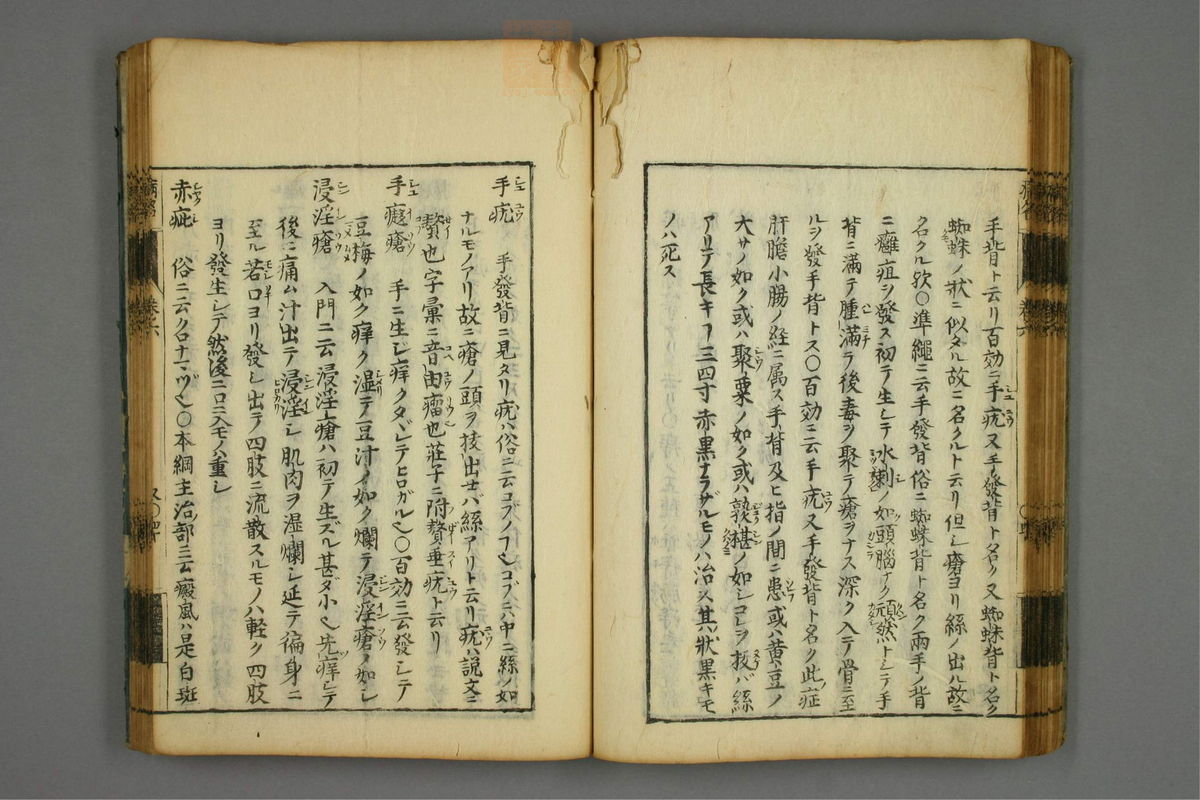 手背ト云リ百効ニ手疣又手發背ト名ク又蜘蛛背ト名ク
蜘蛛ノ状ニ似タル故ニ名クルト云リ但シ瘡ヨリ絲ノ出ル故ニ
名クル欤〇準繩ニ云手發背俗ニ蜘蛛背ト名ク兩手ノ背
ニ癰疽ヲ發ス初テ生シテ水ノ如頭腦ナク頑然トシテ手
背ニ滿テ腫滿ラ後毒ヲ聚テ瘡ヲナス深ク入テ骨ニ至
ルヲ發手背トス〇百効ニ云手疣又手發背ト名ク此症
肝膽小腸ノ経ニ属ス手背及ヒ指ノ間ニ患或ハ黄豆ノ
大サノ如ク或ハ聚粟ノ如ク或ハ椹ノ如シコレヲ抜バ絲
アリテ長キフ三四寸赤黒ナラザルモノハ治ス其状黒キモ
ノハ死ス
手疣 手發背ニ見タリ疣ハ俗ニ云コブノフ也コブニハ中ニ絲ノ如
ナルモノアリ故ニ瘡ノ頭ヲ技出セバ絲アリト云リ疣ハ説文ニ
贅也字彙ニ音由瘤也荘子ニ附贅垂疣ト云リ
手瘡 手ニ生ジ痒クタヾレテヒロガル也〇百効ニ云發シテ
豆梅ノ如ク痒ク湿テ豆汁ノ如ク爛テ浸淫瘡ノ如シ
浸淫瘡 入門ニ云浸淫瘡ハ初テ生ズル甚ダ小也先痒シテ
後ニ痛ム汁出テ浸淫シ肌肉ヲ湿爛シ延テ徧身ニ
至ル若口ヨリ發シ出テ四肢ニ流散スルモノハ軽ク四肢
ヨリ發生シテ然後ニ口ニ入モノハ重シ
赤疵 俗ニ云クロナマヅ也〇本綱主治部ニ云癜風ハ是白斑